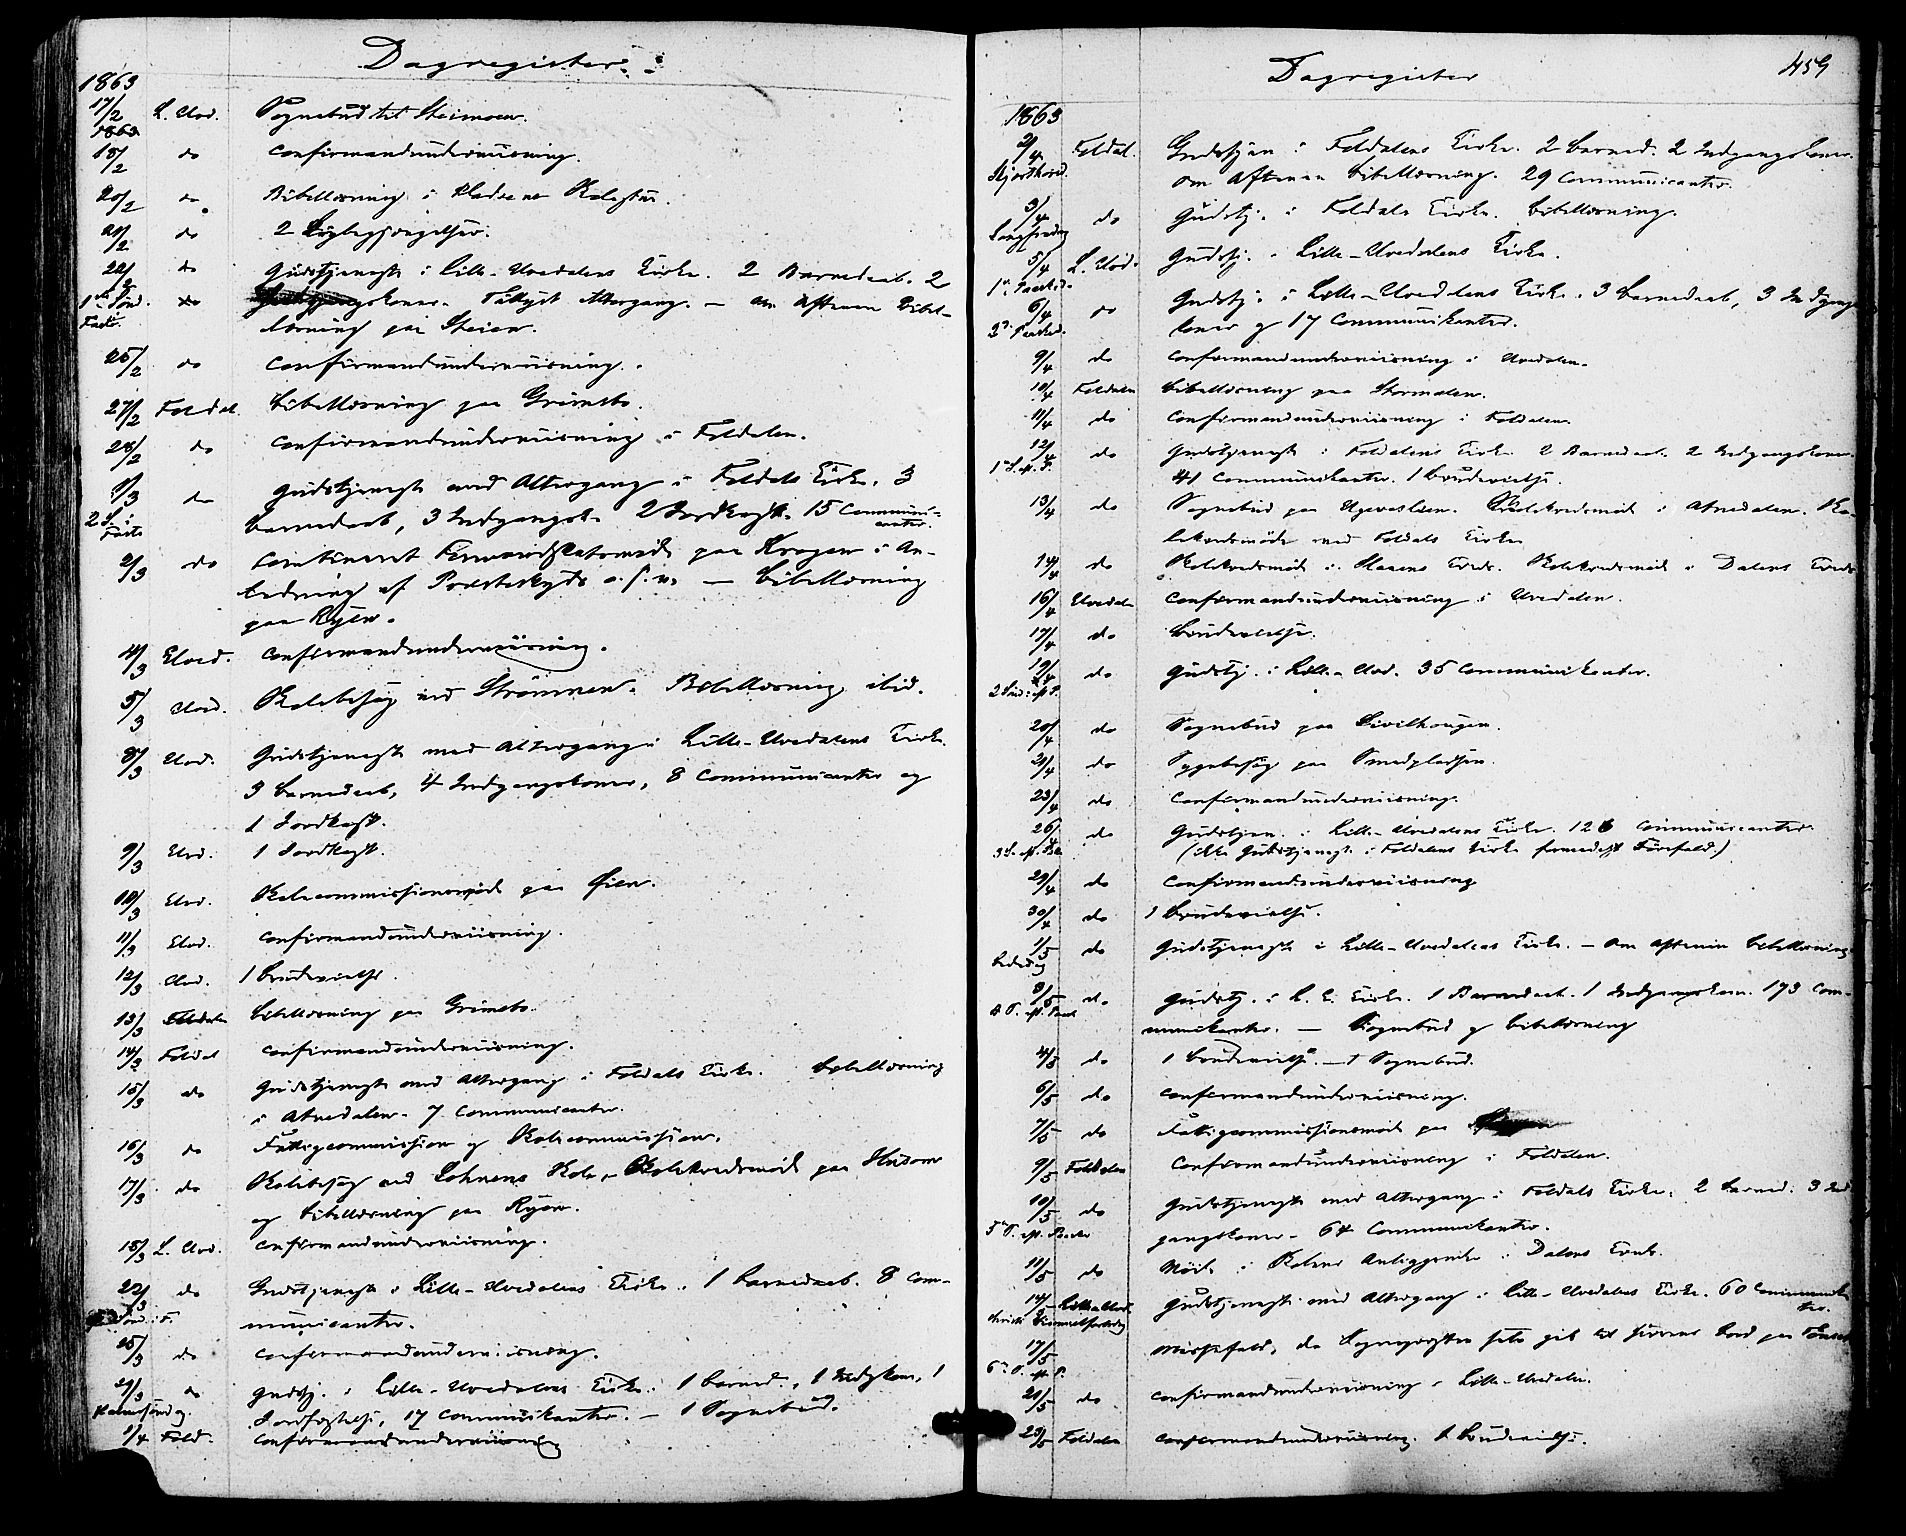 Dagregister.
1863
17/2 L. Elvd. Sognebud til Steimoen.
1863
18/2 do Confirmandundervisning.
20/2 do Bibellæsning i
21/2 do 2
22/2 do Gudstjeneste i Lille-Elvedalens Kirke. 2 Barnedaab. 2
1ste Sønd. Faste. do gangskoner. Altergang. – om Aftenen Bibel-
læsning paa Steien.
25/2 do Confirmandundervisning.
27/2 Foldal. Bibellæsning paa Grimsbo.
28/2 do Confirmandundervisning i Foldalen.
1/3 do Gudstjeneste med Altergang i Foldals Kirke. 3
2 S. i Faste Barnedaab, 3 Indgangsk. 2 Jordkast. 15 Communi-
canter.
2/3 do Combineret Formandskabsmøde paa Krogen i An-
ledning af Præsteskyds o.s.v. – Bibellæsning
paa Ryen.
4/3 Elved. Confirmandundervisning.
5/3 Elved. Skolebesøg ved Strömmen. Bibellæsning ibid.
8/3 Elvd. Gudstjeneste med Altergang i Lille-Elvedalens Kirke.
3 Barnedaab, 4 Indgangskoner, 8 Communicanter og
1 Jordkast.
9/3 Elvd. 1 Jordkast.
10/3 Elvd. Skolecommissionsmøde paa Øien.
11/3 Elvd. Confirmandundervisning.
12/3 Elvd. 1 Brudevielse.
13/3 Foldalen Bibellæsning paa Grimsbo.
14/3 Foldal Confirmandundervisning.
15/3 do Gudstjeneste med Altergang i Foldals Kirke. Bibellæsning
i Atnedalen. 7 Communicanter.
16/3 do Fattigcommission og Skolecommission.
17/3 do Skolebesøg ved Skole, Skolekredsmøde paa
og Bibellæsning paa Ryen.
18/3 L. Elvd. Confirmandundervisning.
22/3 do Gudstjeneste i Lille-Elvedalens Kirke. 1 Barnedaab. 8 Com-
Sønd. i F. municanter.
25/3 do Confirmandundervisning.
29/3 do Gudstj. i Lille-Elvedalens Kirke. 1 Barned., 1 Indgkone, 1
Palmesøndag 17 Communikanter. – 1 Sognebud.
1/4 Fold. Confirmandundervisning
Dagregister
459
1863
2/4 Foldal. Gudstjen. i Foldalens Kirke. 2 Barned. 2 Indgangskoner.
Skjærthorsd. Om Aftenen Bibellæsning. 29 Communicanter.
3/4 do Gudstj. i Foldals Kirke. Bibellæsning.
Langfredag
5/4 L. Elvd. Gudstj. i Lille-Elvedalens Kirke.
1ste Paaskd.
6/4 do Gudstj. i Lille-Elvedalens Kirke. 3 Barnedaab, 3 Indgangs
2d. Paaskd. koner og 17 Communikanter.
9/4 do Confirmandundervisning i Elvedalen.
10/4 Foldalen Bibellæsning paa Stormolen.
11/4 do Confirmandundervisning i Foldalen.
12/4 do Gudstjeneste i Foldalens Kirke. 2 Barnedaab. 2 Indgangskoner.
1ste S. ef. P. 41 Communikanter. 1 Brudevielse.
13/4 do Sognebud paa Skolekredsmøde i Atnedalen. Sko-
lekredsmøde ved Foldals Kirke
14/4 do Skolekredsmøde i Kreds. Skolekredsmøde i Dalens Kreds
16/4 Elvedalen Confirmandundervisning i Elvedalen.
17/4 do Brudevielse.
19/4 do Gudstj. i Lille-Elvd. 35 Communikanter.
2 Sønd. ef. P.
20/4 do Sognebud paa
21/4 do Sygebesøg paa Smedpladsen.
23/4 do Confirmandundervisning.
26/4 do Gudstjen. i Lille-Elvedalens Kirke. 126 Communicanter.
3 S. ef. Paa (ikke Gudstjeneste i Foldalens Kirke formedelst Förefald.)
29/4 do Confirmandundervisning
30/4 do 1 Brudevielse.
1/5 do Gudstjeneste i Lille-Elvedalens Kirke. – Om Aftenen Bibellæsning
Bededag
3/5 do Gudstj. i L. E. Kirke. 1 Barnedaab. 1 Indgangskone. 173 Com-
4 S. ef. Paask munikanter. – Sognebud og Bibellæsning
4/5 do 1 Brudevielse. – 1 Sognebud.
6/5 do Confirmandundervisning.
7/5 do Fattigcommissionsmøde paa
9/5 Foldalen Confirmandundervisning i Foldalen.
10/5 do Gudstjeneste med Altergang i Foldals Kirke. 2 Barned. 3 Ind
5te S. ef. Paaske gangskoner. 64 Communikanter.
11/5 do Møde i Skolens Anliggende i Dalens Kreds.
14/5 Lille-Elvd. Gudstjeneste med Altergang i Lille-Elvedalens Kirke. 60 Communikan
Christi Himmelfartsdag ter.
17/5 Messefald, da Sognepræsten
6te S. ef. P.
21/5 do Confirmandundervisning i Lille-Elvedalen.
23/5 Foldalen Confirmandundervisning. 1 Brudevielse.